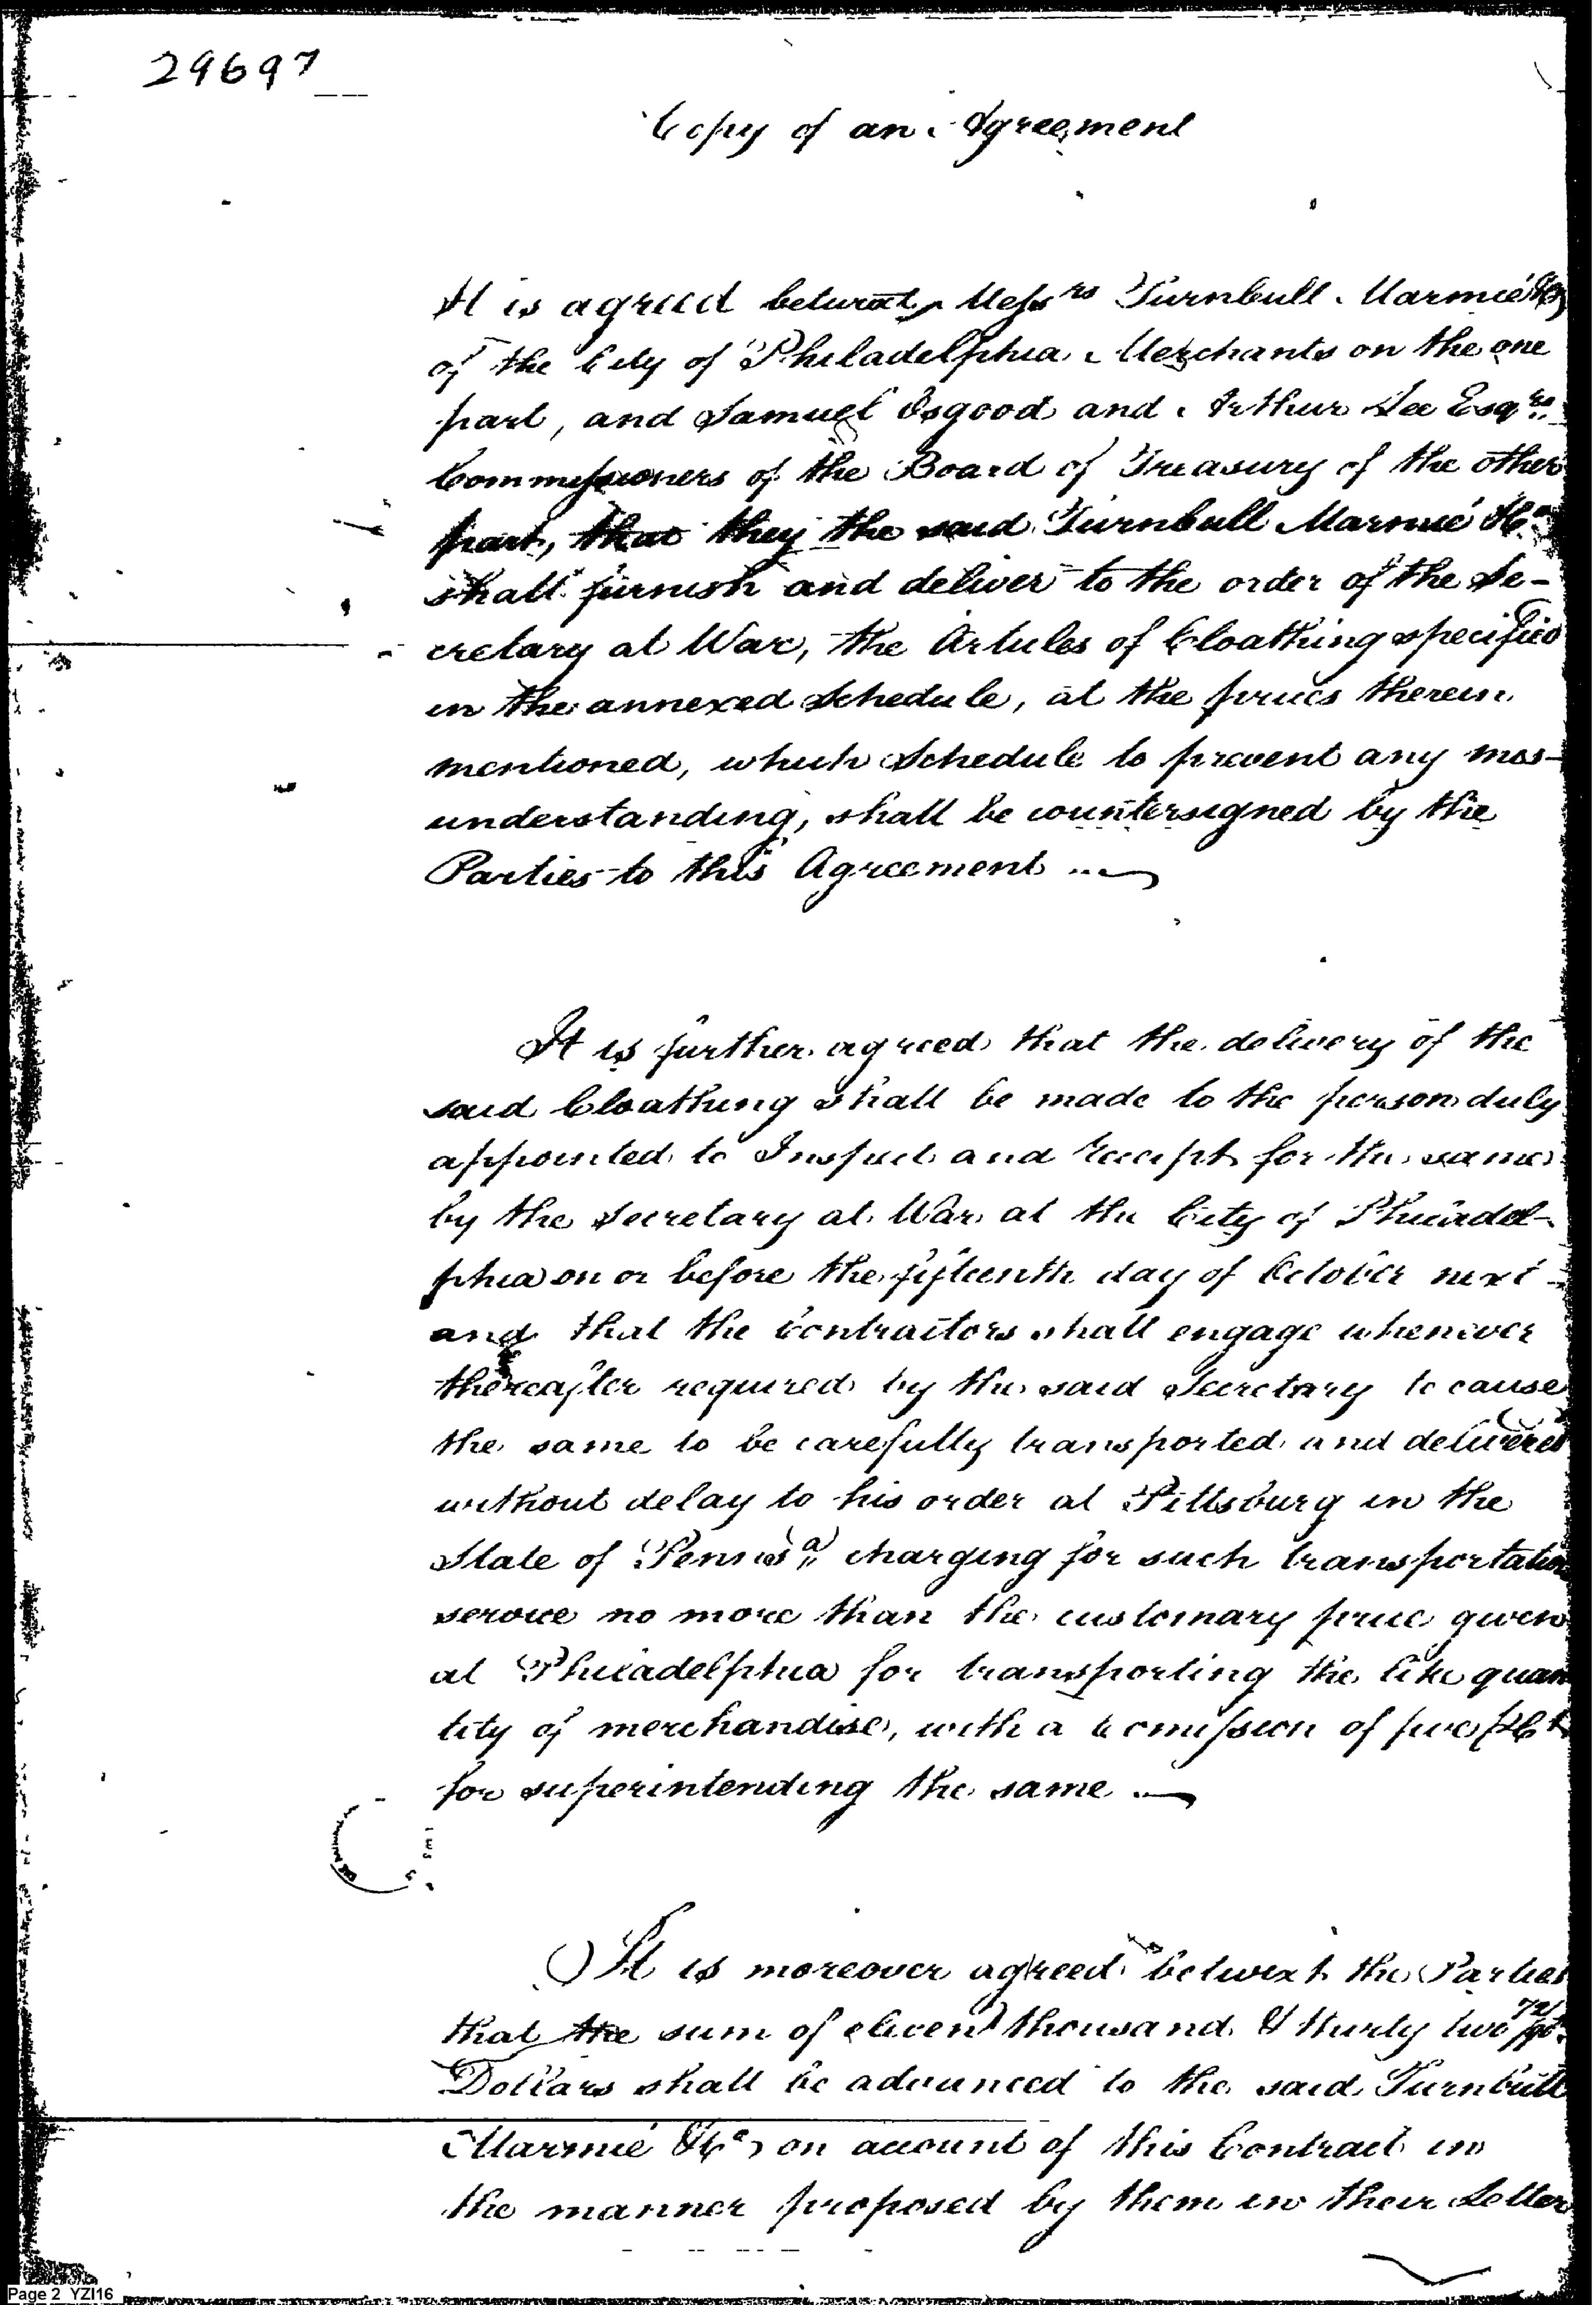 29697
Copy of an Agreement
It is agreed betwixt Messrs Turnbull Marmié &Co
of the City of Philadelphia Merchants on the one
part, and Samuel Osgood and Arthur Lee Esqrs
Commissioners of the Board of Treasury of the other
part, that they the said Turnbull Marmié &Co
shall furnish and deliver to the order of the Se-
cretary at War, the Articles of Cloathing specified
in the annexed Schedule, at the prices therein
mentioned, which Schedule to prevent any mis-
understanding, shall be countersigned by the
Parties to this Agreement
It is further agreed that the delivery of the
said Cloathing shall be made to the person duly
appointed to Inspect and receipt for the same
by the Secretary at War at the City of Philadel-
phia on or before the fifteenth day of October next
and that the Contractors shall engage whenever
thereafter required by the said Secretary to cause
the same to be carefully transported and delivered
without delay to his order at Pittsburg in the
State of Pennsa charging for such transportation
service no more than the customary price given
at Philadelphia for transporting the like quan
tity of merchandise, with a Comission of five pCt
for superintending the same
It is moreover agreed betwixt the Parties
that the sum of eleven thousand & thirty two 72/90
Dollars shall be advanced to the said Turnbull
Marmié &Co on account of this Contract in
the manner proposed by them in their Letter
Page 2 YZI16